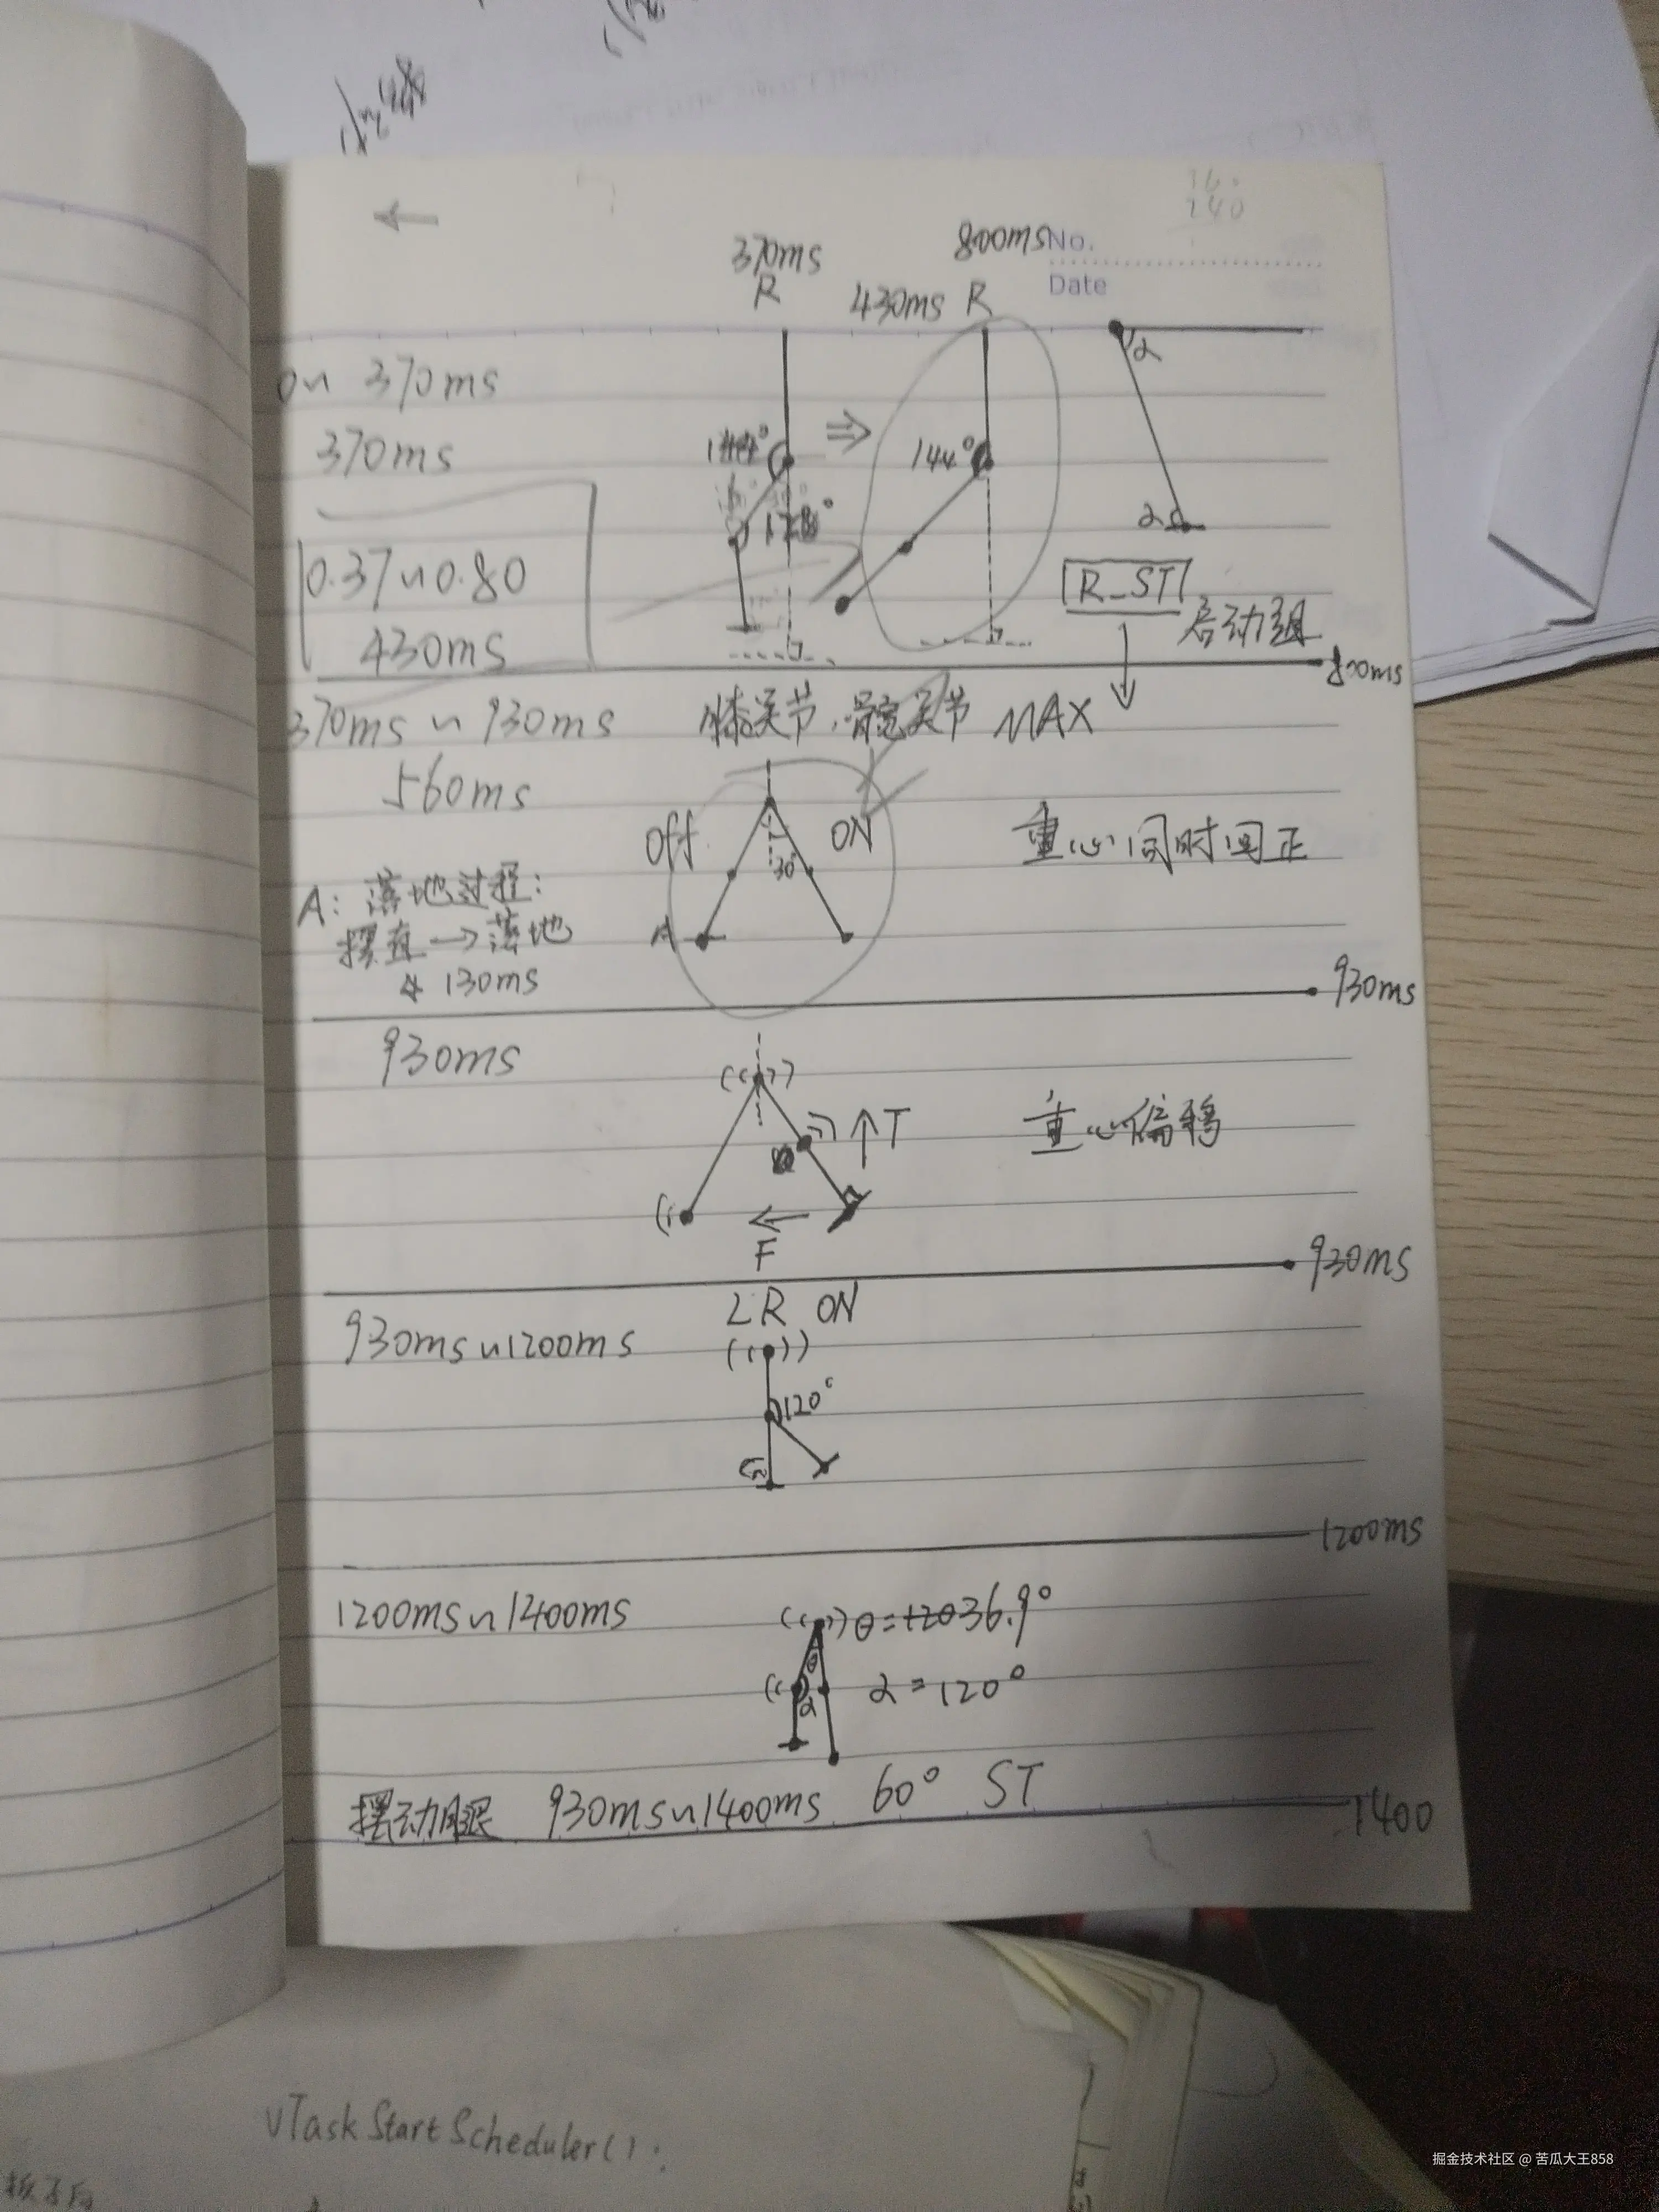 370ms
R
800ms
No.
Date
430ms R
0~370ms
370ms
144°
α
0.37~0.80
430ms
R_ST
启动组
800ms
370ms~930ms
膝关节、髋关节 MAX
560ms
Off
ON
30°
重心同时回正
A: 落地过程:
摆直→落地
130ms
A
930ms
930ms
T
重心偏移
F
930ms
LR ON
930ms~1200ms
120°
1200ms
1200ms~1400ms
θ=120 36.9°
θ
α
α=120°
摆动腿 930ms~1400ms 60° ST
1400
vTaskStartScheduler();
掘金技术社区 @ 苦瓜大王858